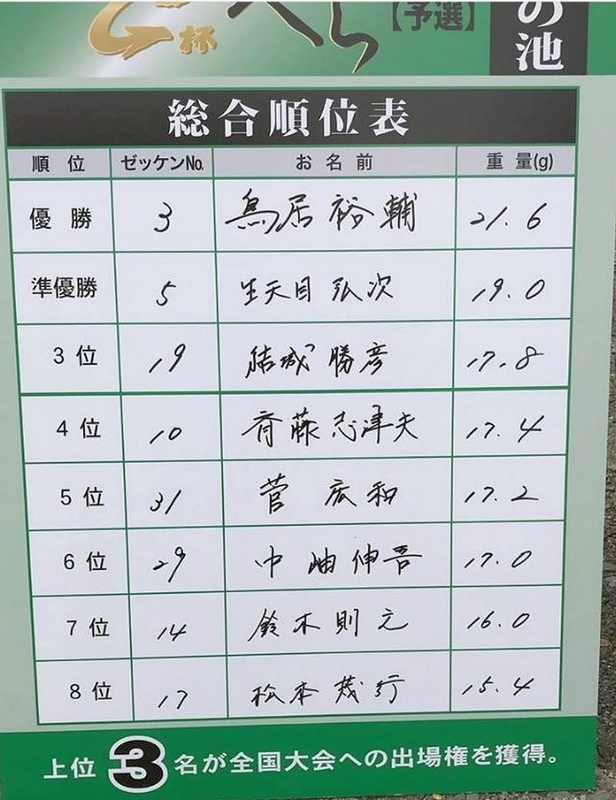 杯 へら 【予選】 の池
総合順位表
順位 ゼッケンNo. お名前 重量(g)
優勝 3 鳥居裕輔 21.6
準優勝 5 生天目弘次 19.0
3位 19 結城勝彦 17.8
4位 10 斉藤志津夫 17.4
5位 31 菅広和 17.2
6位 29 中岫伸吾 17.0
7位 14 鈴木則元 16.0
8位 17 松本茂行 15.4
上位3名が全国大会への出場権を獲得。